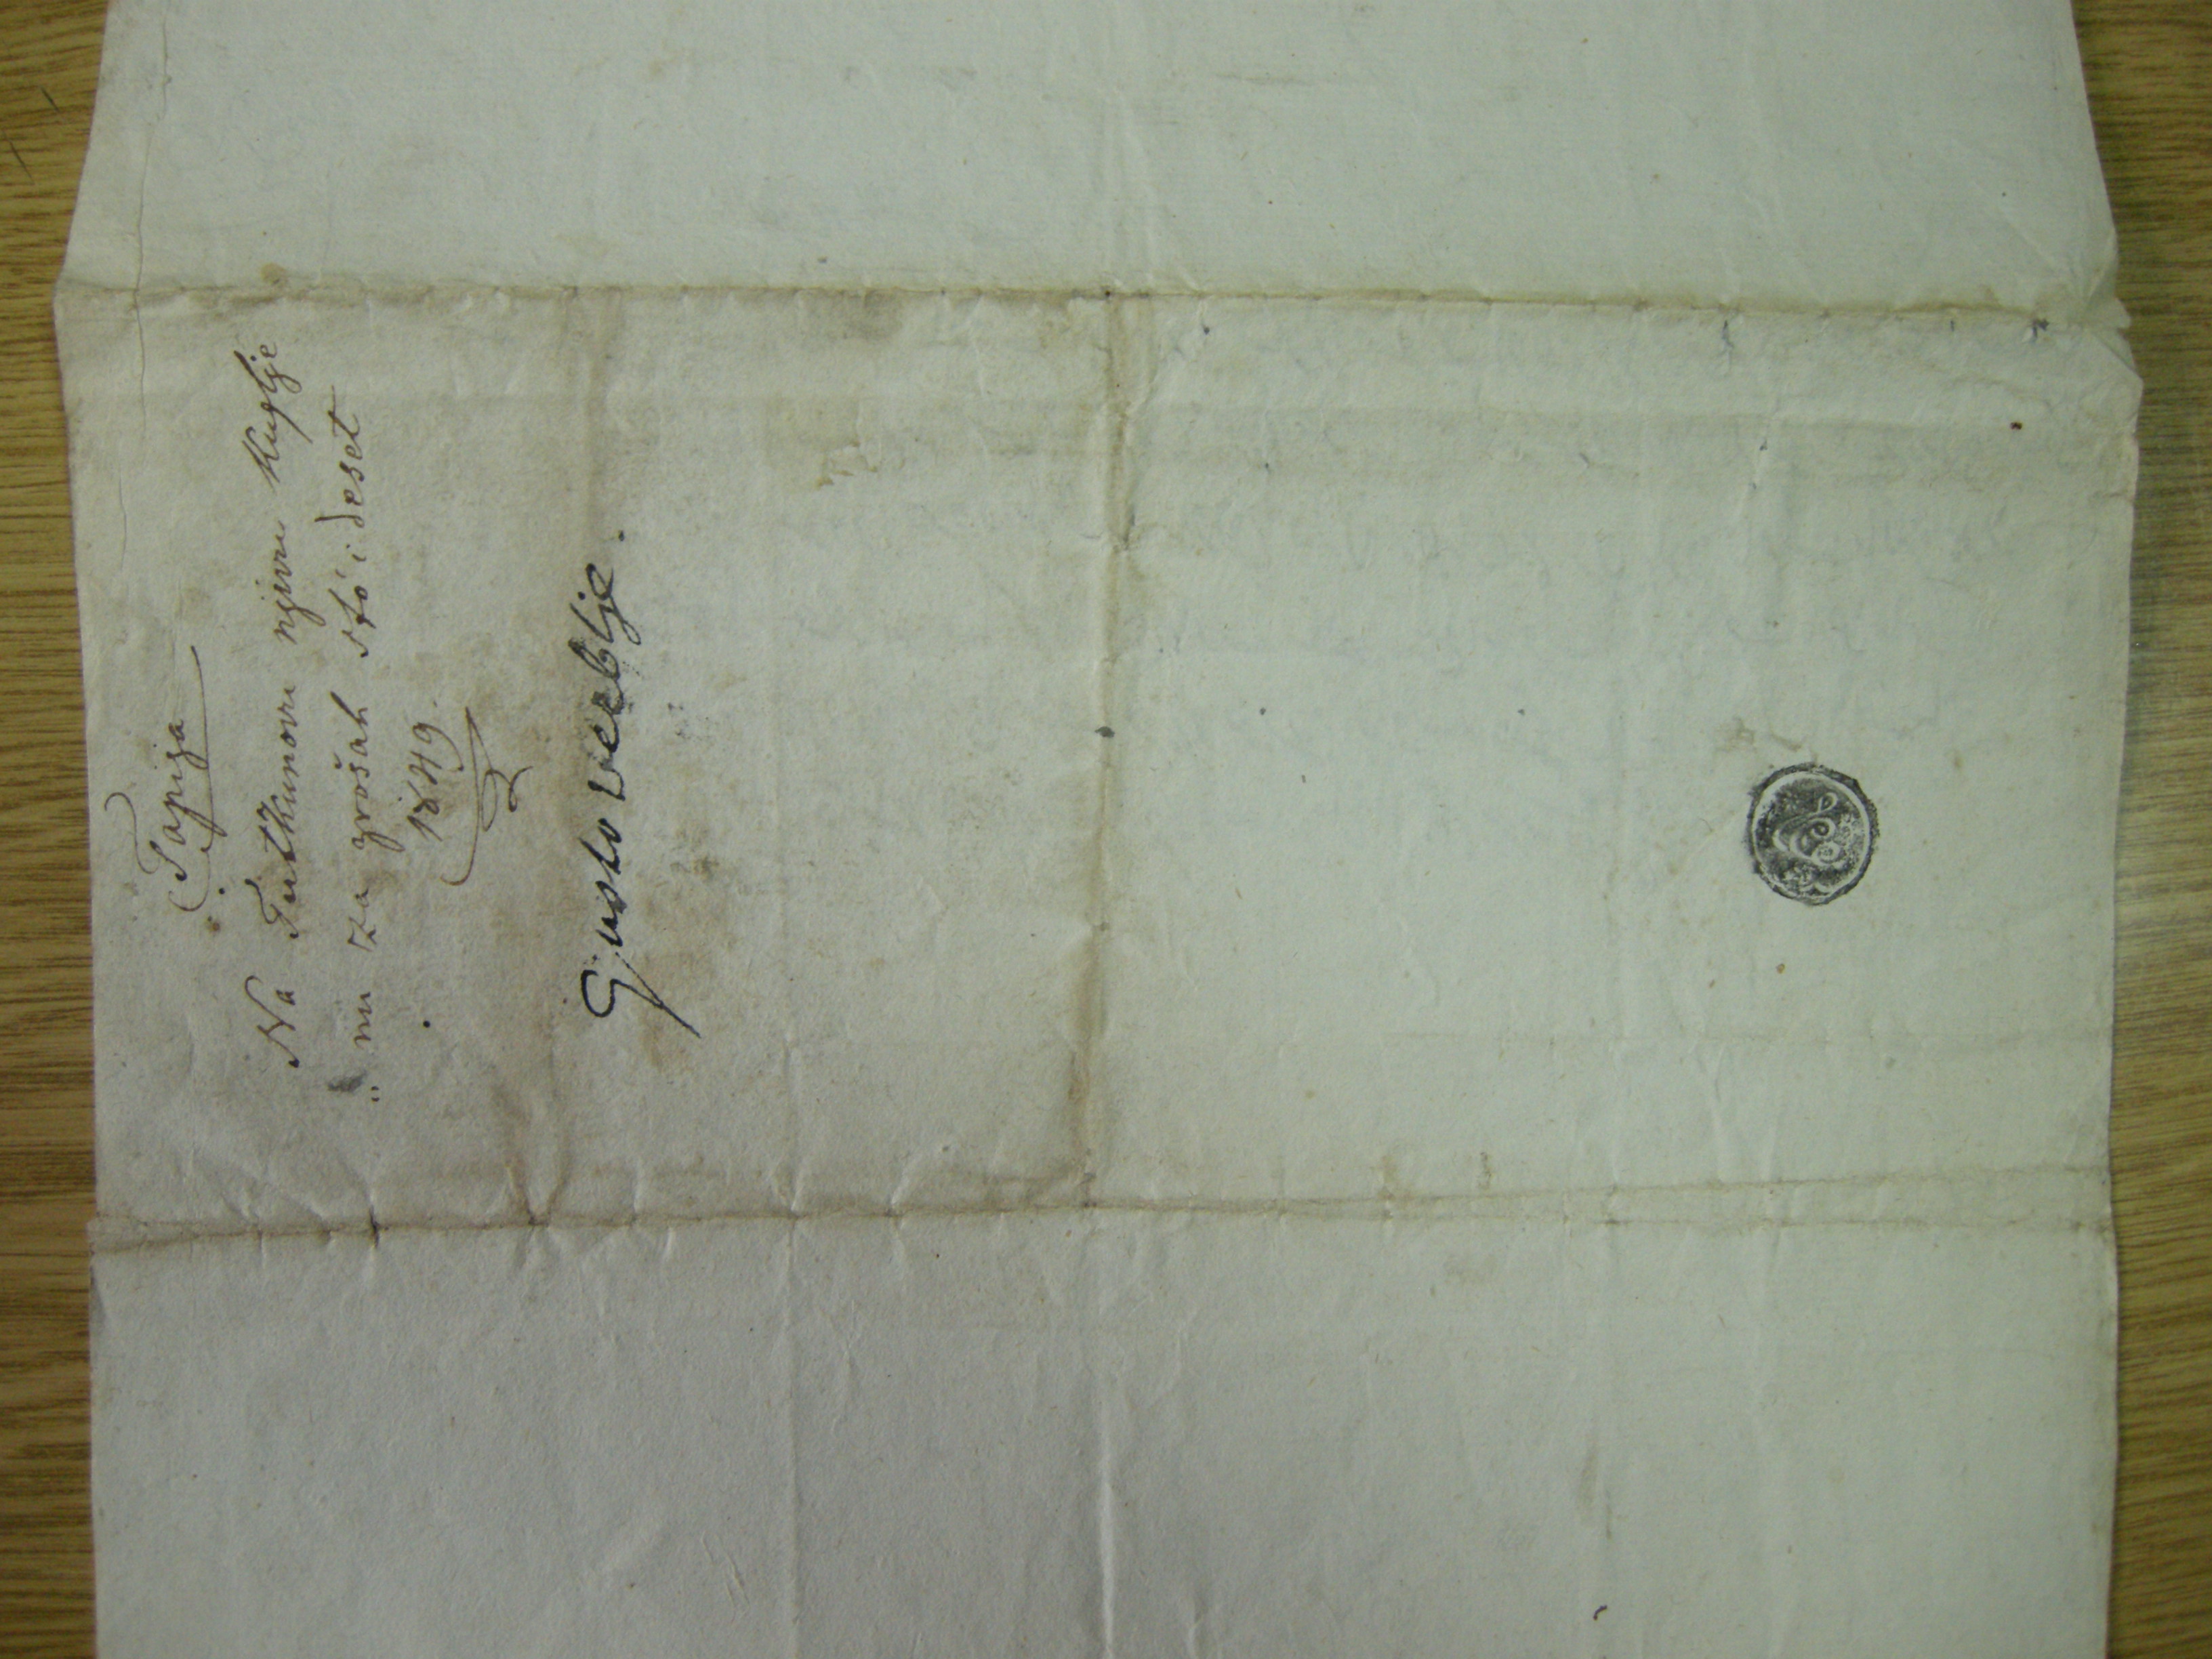 Tapija
Na Tutkunovu njivu kuplje
nu za grošah stó i deset
1849.
Gjusto veeblje.